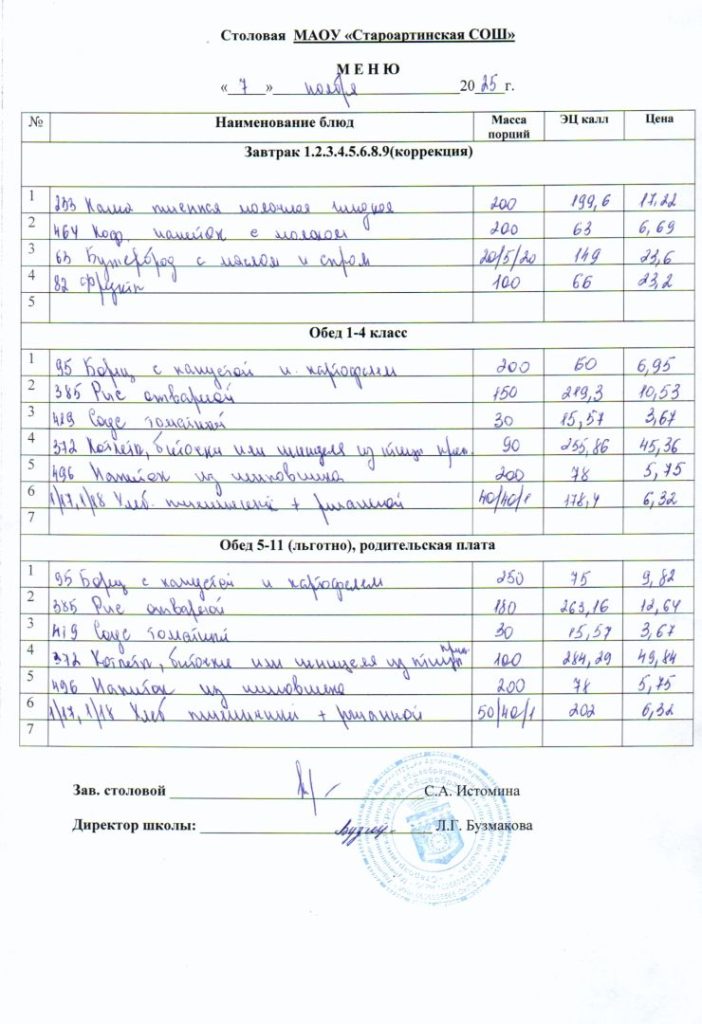 Столовая МАОУ «Староартинская СОШ»
М Е Н Ю
« 7 » ноября 2025 г.
№ Наименование блюд Масса порций ЭЦ калл Цена
Завтрак 1.2.3.4.5.6.8.9(коррекция)
1 233 Каша пшенная молочная жидкая 200 199,6 17,22
2 464 Коф. напиток с молоком 200 63 6,69
3 63 Бутерброд с маслом и сыром 20/5/20 149 23,6
4 82 Фрукты 100 66 23,2
5
Обед 1-4 класс
1 95 Борщ с капустой и картофелем 200 60 6,95
2 385 Рис отварной 150 219,3 10,53
3 419 Соус томатный 30 15,57 3,67
4 372 Котлеты, биточки или шницеля из птицы 90 255,86 45,36
5 496 Напиток из шиповника 200 78 5,75
6 1/17, 1/18 Хлеб пшеничный + ржаной 40/40/1 178,4 6,32
7
Обед 5-11 (льготно), родительская плата
1 95 Борщ с капустой и картофелем 250 75 9,82
2 385 Рис отварной 180 263,16 12,64
3 419 Соус томатный 30 15,57 3,67
4 372 Котлеты, биточки или шницеля из птицы 100 284,29 49,84
5 496 Напиток из шиповника 200 78 5,75
6 1/17, 1/18 Хлеб пшеничный + ржанной 50/40/1 202 6,32
7
Зав. столовой С.А. Истомина
Директор школы: Л.Г. Бузмакова